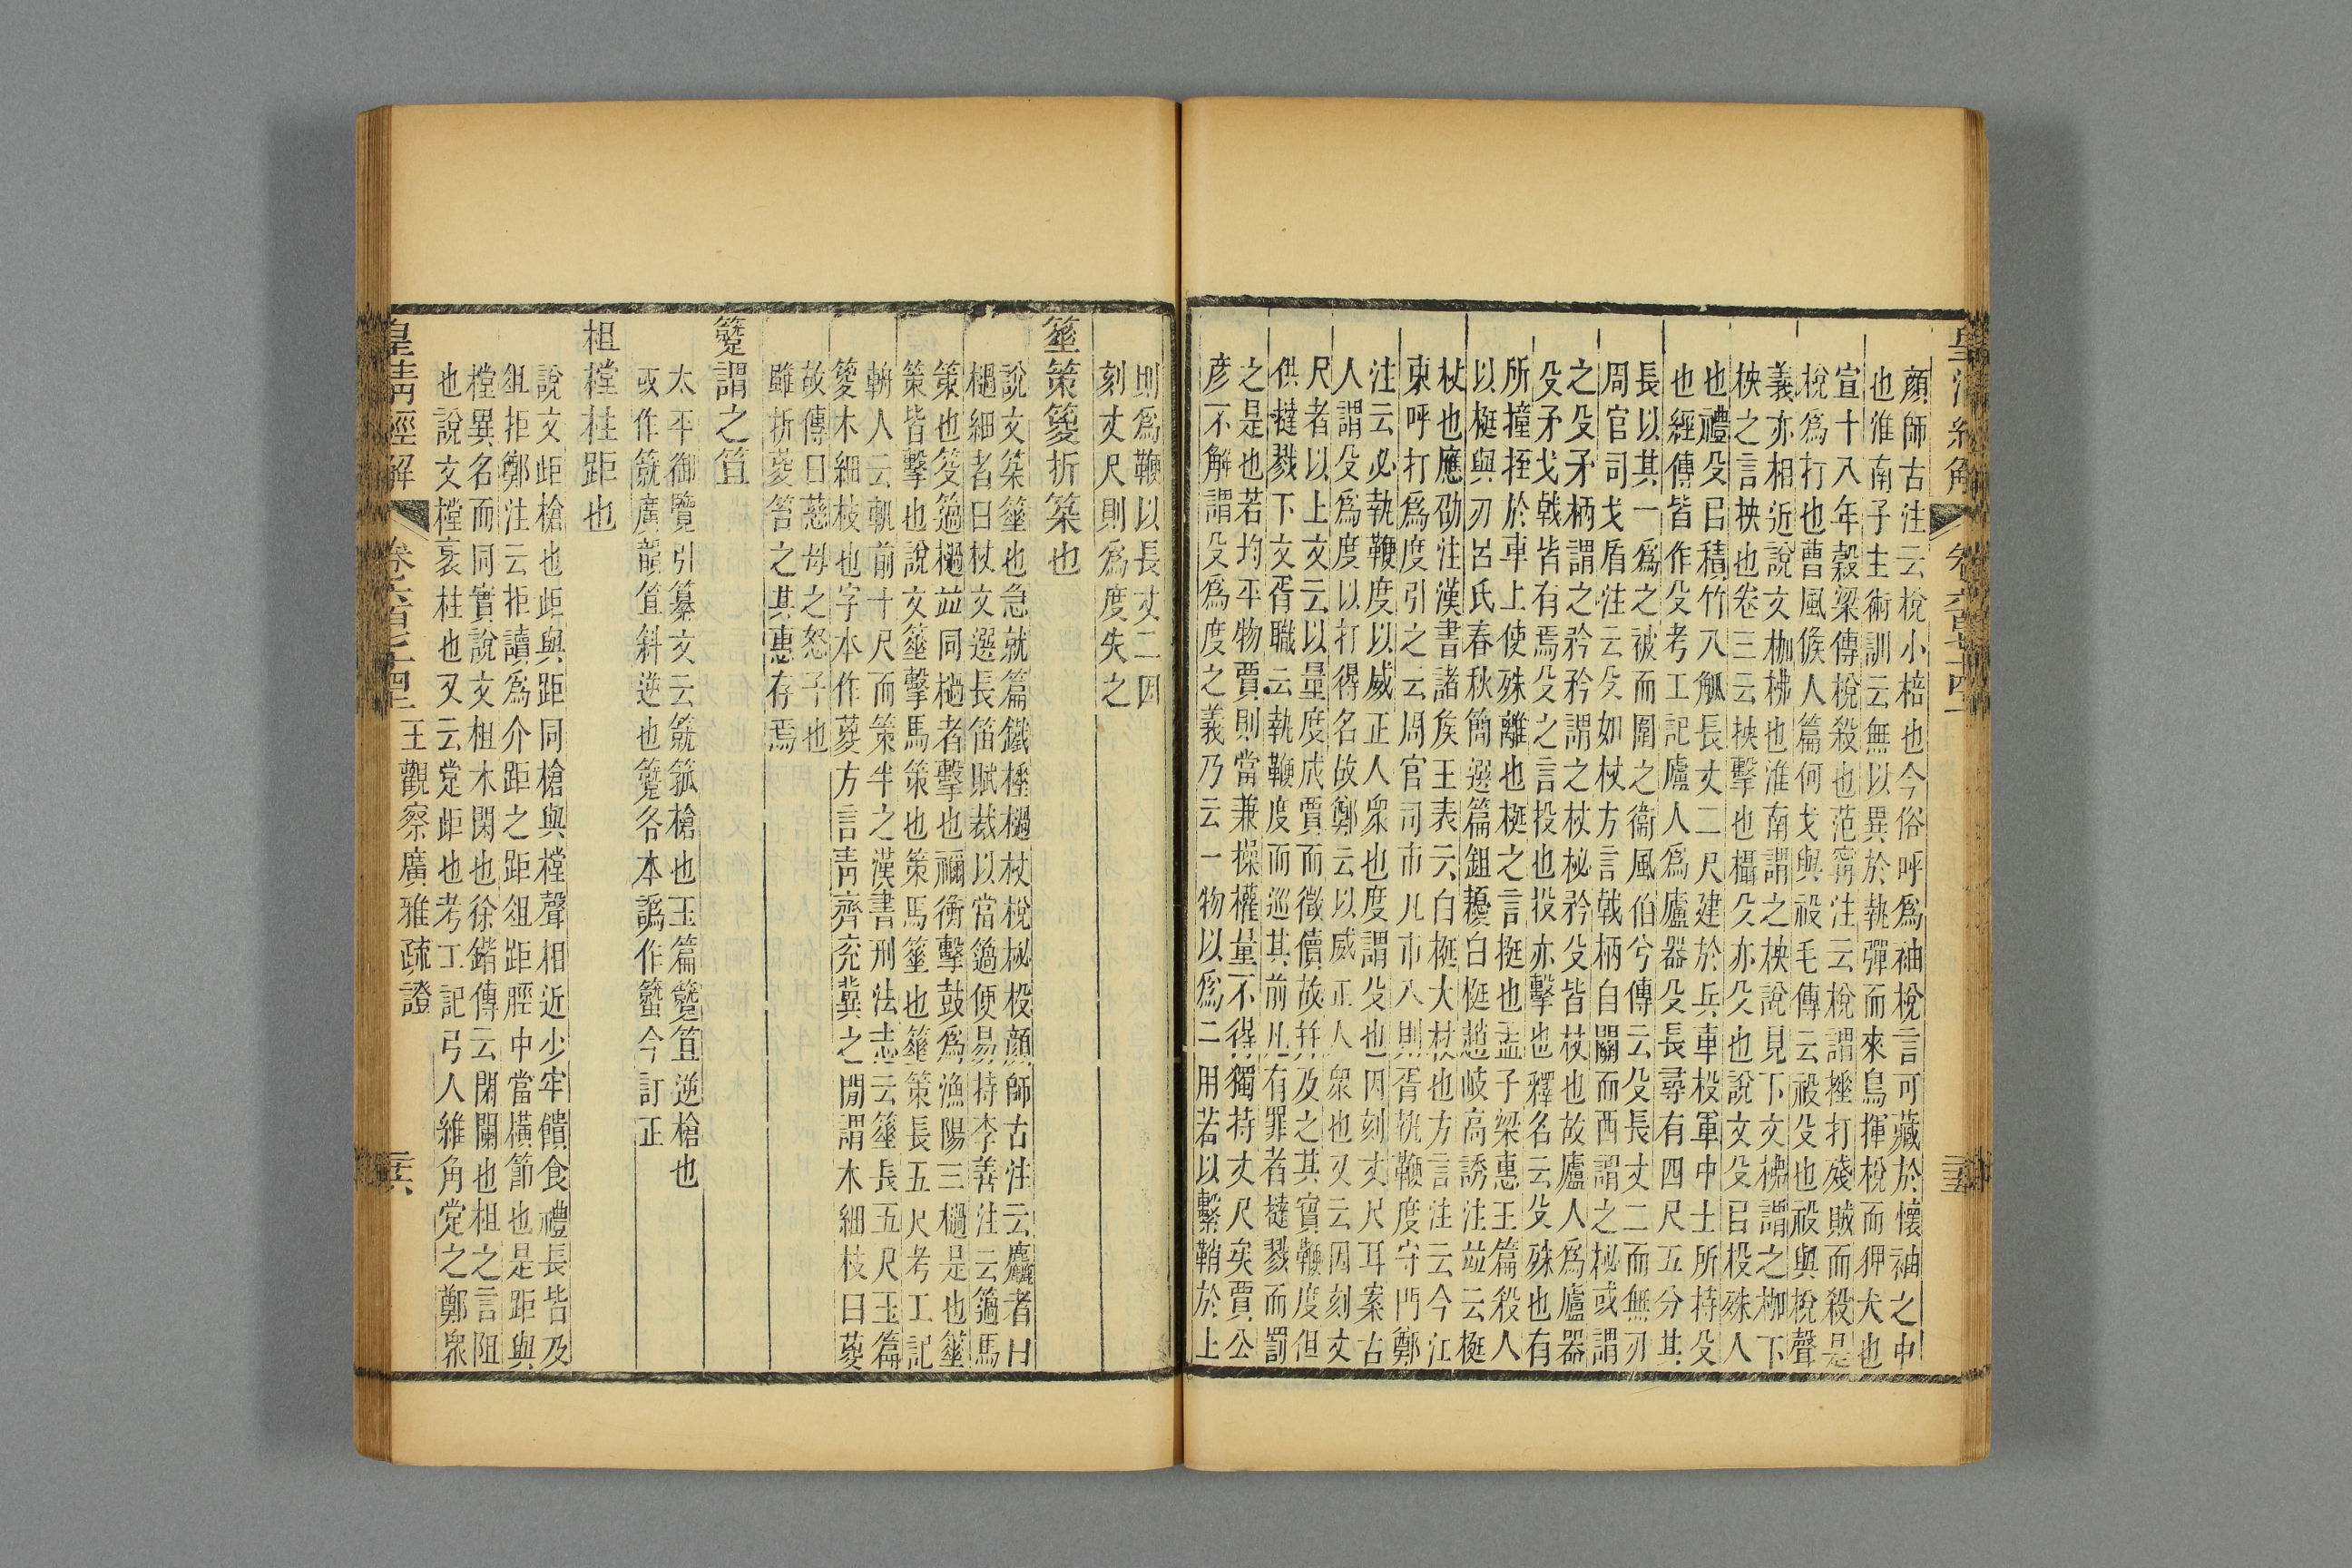 皇清經解
卷六百七十四
顏師古注云梲小棓也今俗呼爲袖梲言可藏於懷袖之中
也淮南子主術訓云無以異於執彈而來鳥揮梲而狎犬也
宣十八年穀梁傳梲殺也范甯注云梲謂捶打殘賊而殺是
梲爲打也曹風候人篇何戈與祋毛傳云祋殳也祋與梲聲
義亦相近說文枷柫也淮南謂之柍說見下文柫謂之枷下
柍之言抰也卷三云抰擊也欇殳亦殳也說文殳㠯投殊人
也禮殳㠯積竹八觚長丈二尺建於兵車祋軍中士所持殳
也經傳皆作殳考工記廬人爲廬器殳長尋有四尺五分其
長以其一爲之被而圍之衞風伯兮傳云殳長丈二而無刃
周官司戈盾注云殳如杖方言戟柄自關而西謂之柲或謂
之殳矛柄謂之矜矜謂之杖柲矜殳皆杖也故廬人爲廬器
殳矛戈戟皆有焉殳之言投也投亦擊也釋名云殳殊也有
所撞挃於車上使殊離也梃之言挺也孟子梁惠王篇殺人
以梃與刃呂氏春秋簡選篇鉏櫌白梃趙岐高誘注竝云梃
杖也應劭注漢書諸矦王表云白梃大杖也方言注云今江
東呼打爲度引之云周官司市凡市入則胥執鞭度守門鄭
注云必執鞭度以威正人衆也度謂殳也因刻丈尺耳案古
人謂殳爲度以打得名故鄭云以威正人衆也又云因刻丈
尺者以上文云以量度成賈而徵儥故幷及之其實鞭度但
供撻戮下文胥職云執鞭度而巡其前凡有罪者撻戮而罰
之是也若均平物賈則當兼操權量不得獨持丈尺矣賈公
彥不解謂殳爲度之義乃云一物以爲二用若以繫鞘於上
則爲鞭以長丈二因
刻丈尺則爲度失之
箠策篗折築也
說文築箠也急就篇鐵棰檛杖梲柲杸顏師古注云麤者曰
檛細者曰杖文選長笛賦裁以當簻便易持李善注云簻馬
策也筊簻檛竝同檛者擊也禰衡擊鼓爲漁陽三檛是也箠
策皆擊也說文箠擊馬策也策馬箠也箠策長五尺考工記
輈人云軓前十尺而策半之漢書刑法志云箠長五尺玉篇
篗木細枝也字本作葼方言靑齊兖冀之閒謂木細枝曰葼
故傳曰慈母之怒子也
雖折葼笞之其惠存焉
籆謂之笡
太平御覽引纂文云䇶筂槍也玉篇籆笡逆槍也
或作䇶廣韻笡斜逆也籆各本譌作籆今訂正
柤樘柱距也
說文歫槍也歫與距同槍與樘聲相近少牢饋食禮長皆及
俎拒鄭注云拒讀爲介距之距俎距脛中當橫節也是距與
樘異名而同實說文柤木閑也徐鍇傳云閑闌也柤之言阻
也說文樘衺柱也又云䟫歫也考工記弓人維角䟫之鄭衆
皇清經解
卷六百七十四
王觀察廣雅疏證